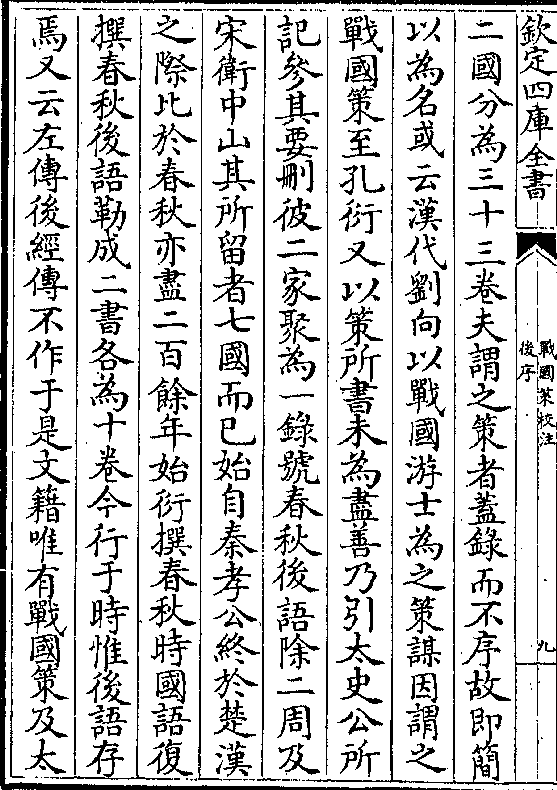 欽定四庫全書
戰國策校注
後序
九
二國分為三十三卷夫謂之策者蓋錄而不序故即簡
以為名或云漢代劉向以戰國游士為之策謀因謂之
戰國策至孔衍又以策所書未為盡善乃引太史公所
記參其要刪彼二家聚為一錄號春秋後語除二周及
宋衛中山其所留者七國而已始自秦孝公終於楚漢
之際比於春秋亦盡二百餘年始衍撰春秋時國語復
撰春秋後語勒成二書各為十卷今行于時惟後語存
焉又云左傳後經傳不作于是文籍唯有戰國策及太